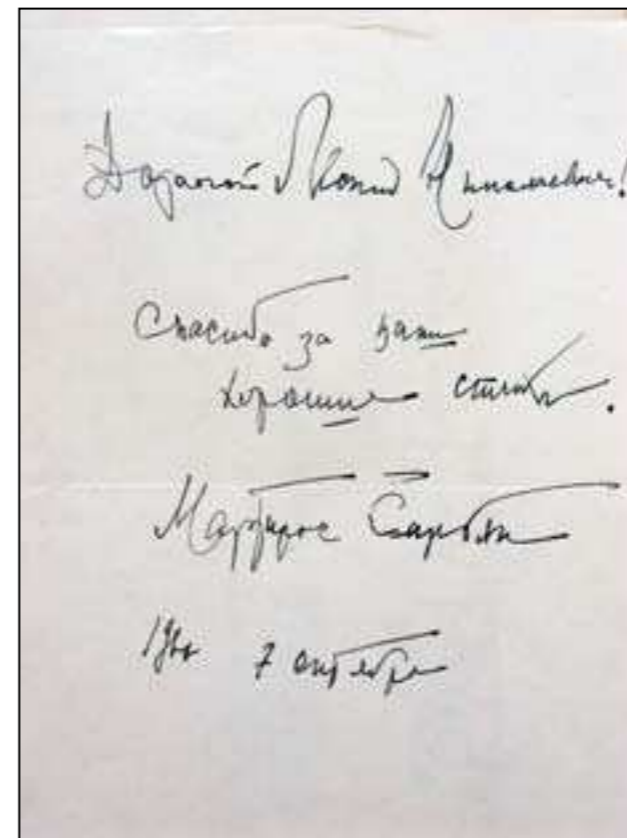 Дорогой Леонид Николаевич!
Спасибо за ваши
хорошие стихи.
Мартирос Сарьян
7 октября